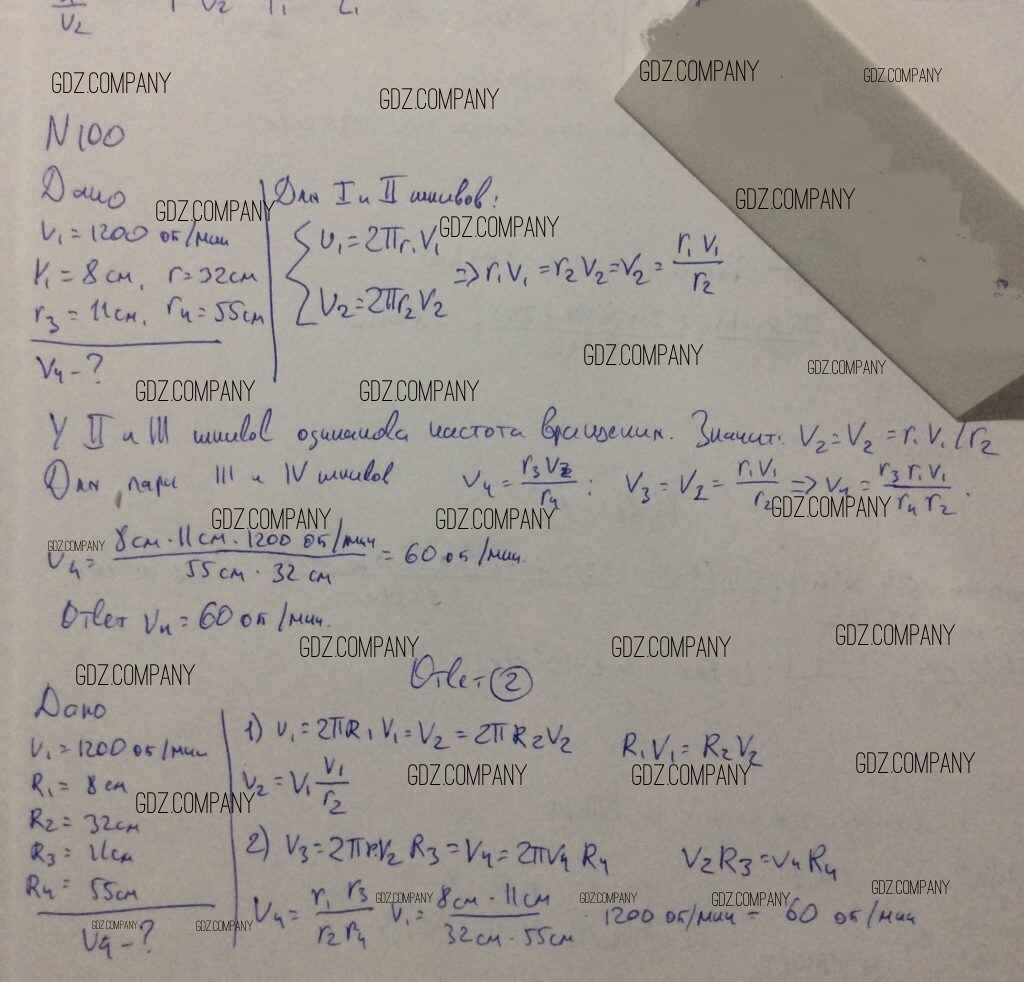 V₂ V₂ r₁ 2₁
GDZ.COMPANY GDZ.COMPANY
GDZ.COMPANY GDZ.COMPANY
N 100
Дано
Для I и II шкивов:
GDZ.COMPANY GDZ.COMPANY GDZ.COMPANY
ν₁ = 1200 об/мин
r₁ = 8 см, r = 32 см
r₃ = 11 см, r₄ = 55 см
ν₄ - ?
υ₁ = 2πr₁ν₁
υ₂ = 2πr₂ν₂
=> r₁ν₁ = r₂ν₂ = ν₂ = r₁ν₁/r₂
GDZ.COMPANY GDZ.COMPANY
GDZ.COMPANY GDZ.COMPANY
У II и III шкивов одинакова частота вращения. Значит: ν₂ = ν₂ = r₁ν₁/r₂
Для пары III и IV шкивов ν₄ = r₃ν₂/r₄; ν₃ = ν₂ = r₁ν₁/r₂ => ν₄ = r₃r₁ν₁/r₄r₂.
GDZ.COMPANY GDZ.COMPANY GDZ.COMPANY
GDZ.COMPANY
ν₄ = 8 см · 11 см · 1200 об/мин / 55 см · 32 см = 60 об/мин.
Ответ ν₄ = 60 об/мин.
GDZ.COMPANY GDZ.COMPANY GDZ.COMPANY
GDZ.COMPANY
Ответ 2
Дано
ν₁ = 1200 об/мин
R₁ = 8 см
R₂ = 32 см
R₃ = 11 см
R₄ = 55 см
ν₄ - ?
1) υ₁ = 2πR₁ν₁ = υ₂ = 2πR₂ν₂ R₁ν₁ = R₂ν₂
ν₂ = ν₁ ν₁/r₂
GDZ.COMPANY GDZ.COMPANY GDZ.COMPANY
GDZ.COMPANY
2) υ₃ = 2πν₂R₃ = υ₄ = 2πν₄R₄ ν₂R₃ = ν₄R₄
ν₄ = r₁r₃/r₂r₄ ν₁ = 8 см · 11 см / 32 см · 55 см · 1200 об/мин = 60 об/мин
GDZ.COMPANY GDZ.COMPANY GDZ.COMPANY GDZ.COMPANY
GDZ.COMPANY GDZ.COMPANY